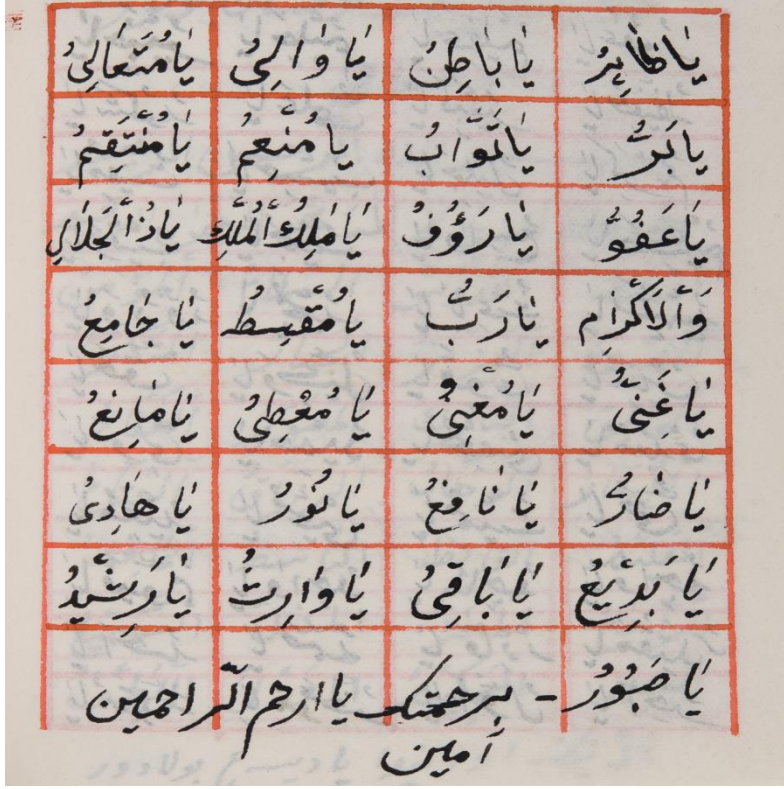 يَا ظَاهِرُ يَا بَاطِنُ يَا وَالِىُ يَا مُتَعَالِىُ
يَا بَرُّ يَا تَوَّابُ يَا مُنْعِمُ يَا مُنْتَقِمُ
يَا عَفُوُّ يَا رَؤُفُ يَا مَلِكُ الْمُلْكِ يَا ذُالْجَلَالِ
وَالْاَكْرَامِ يَا رَبُّ يَا مُقْسِطُ يَا جَامِعُ
يَا غَنِىُّ يَا مُغْنِىُ يَا مُعْطِىُ يَا مَانِعُ
يَا ضَارُّ يَا نَافِعُ يَا نُورُ يَا هَادِىُ
يَا بَدِيْعُ يَا بَاقِىُ يَا وَارِثُ يَا رَشِيْدُ
يَا صَبُوْرُ - برحمتك يا ارحم الرّاحمين
آمين